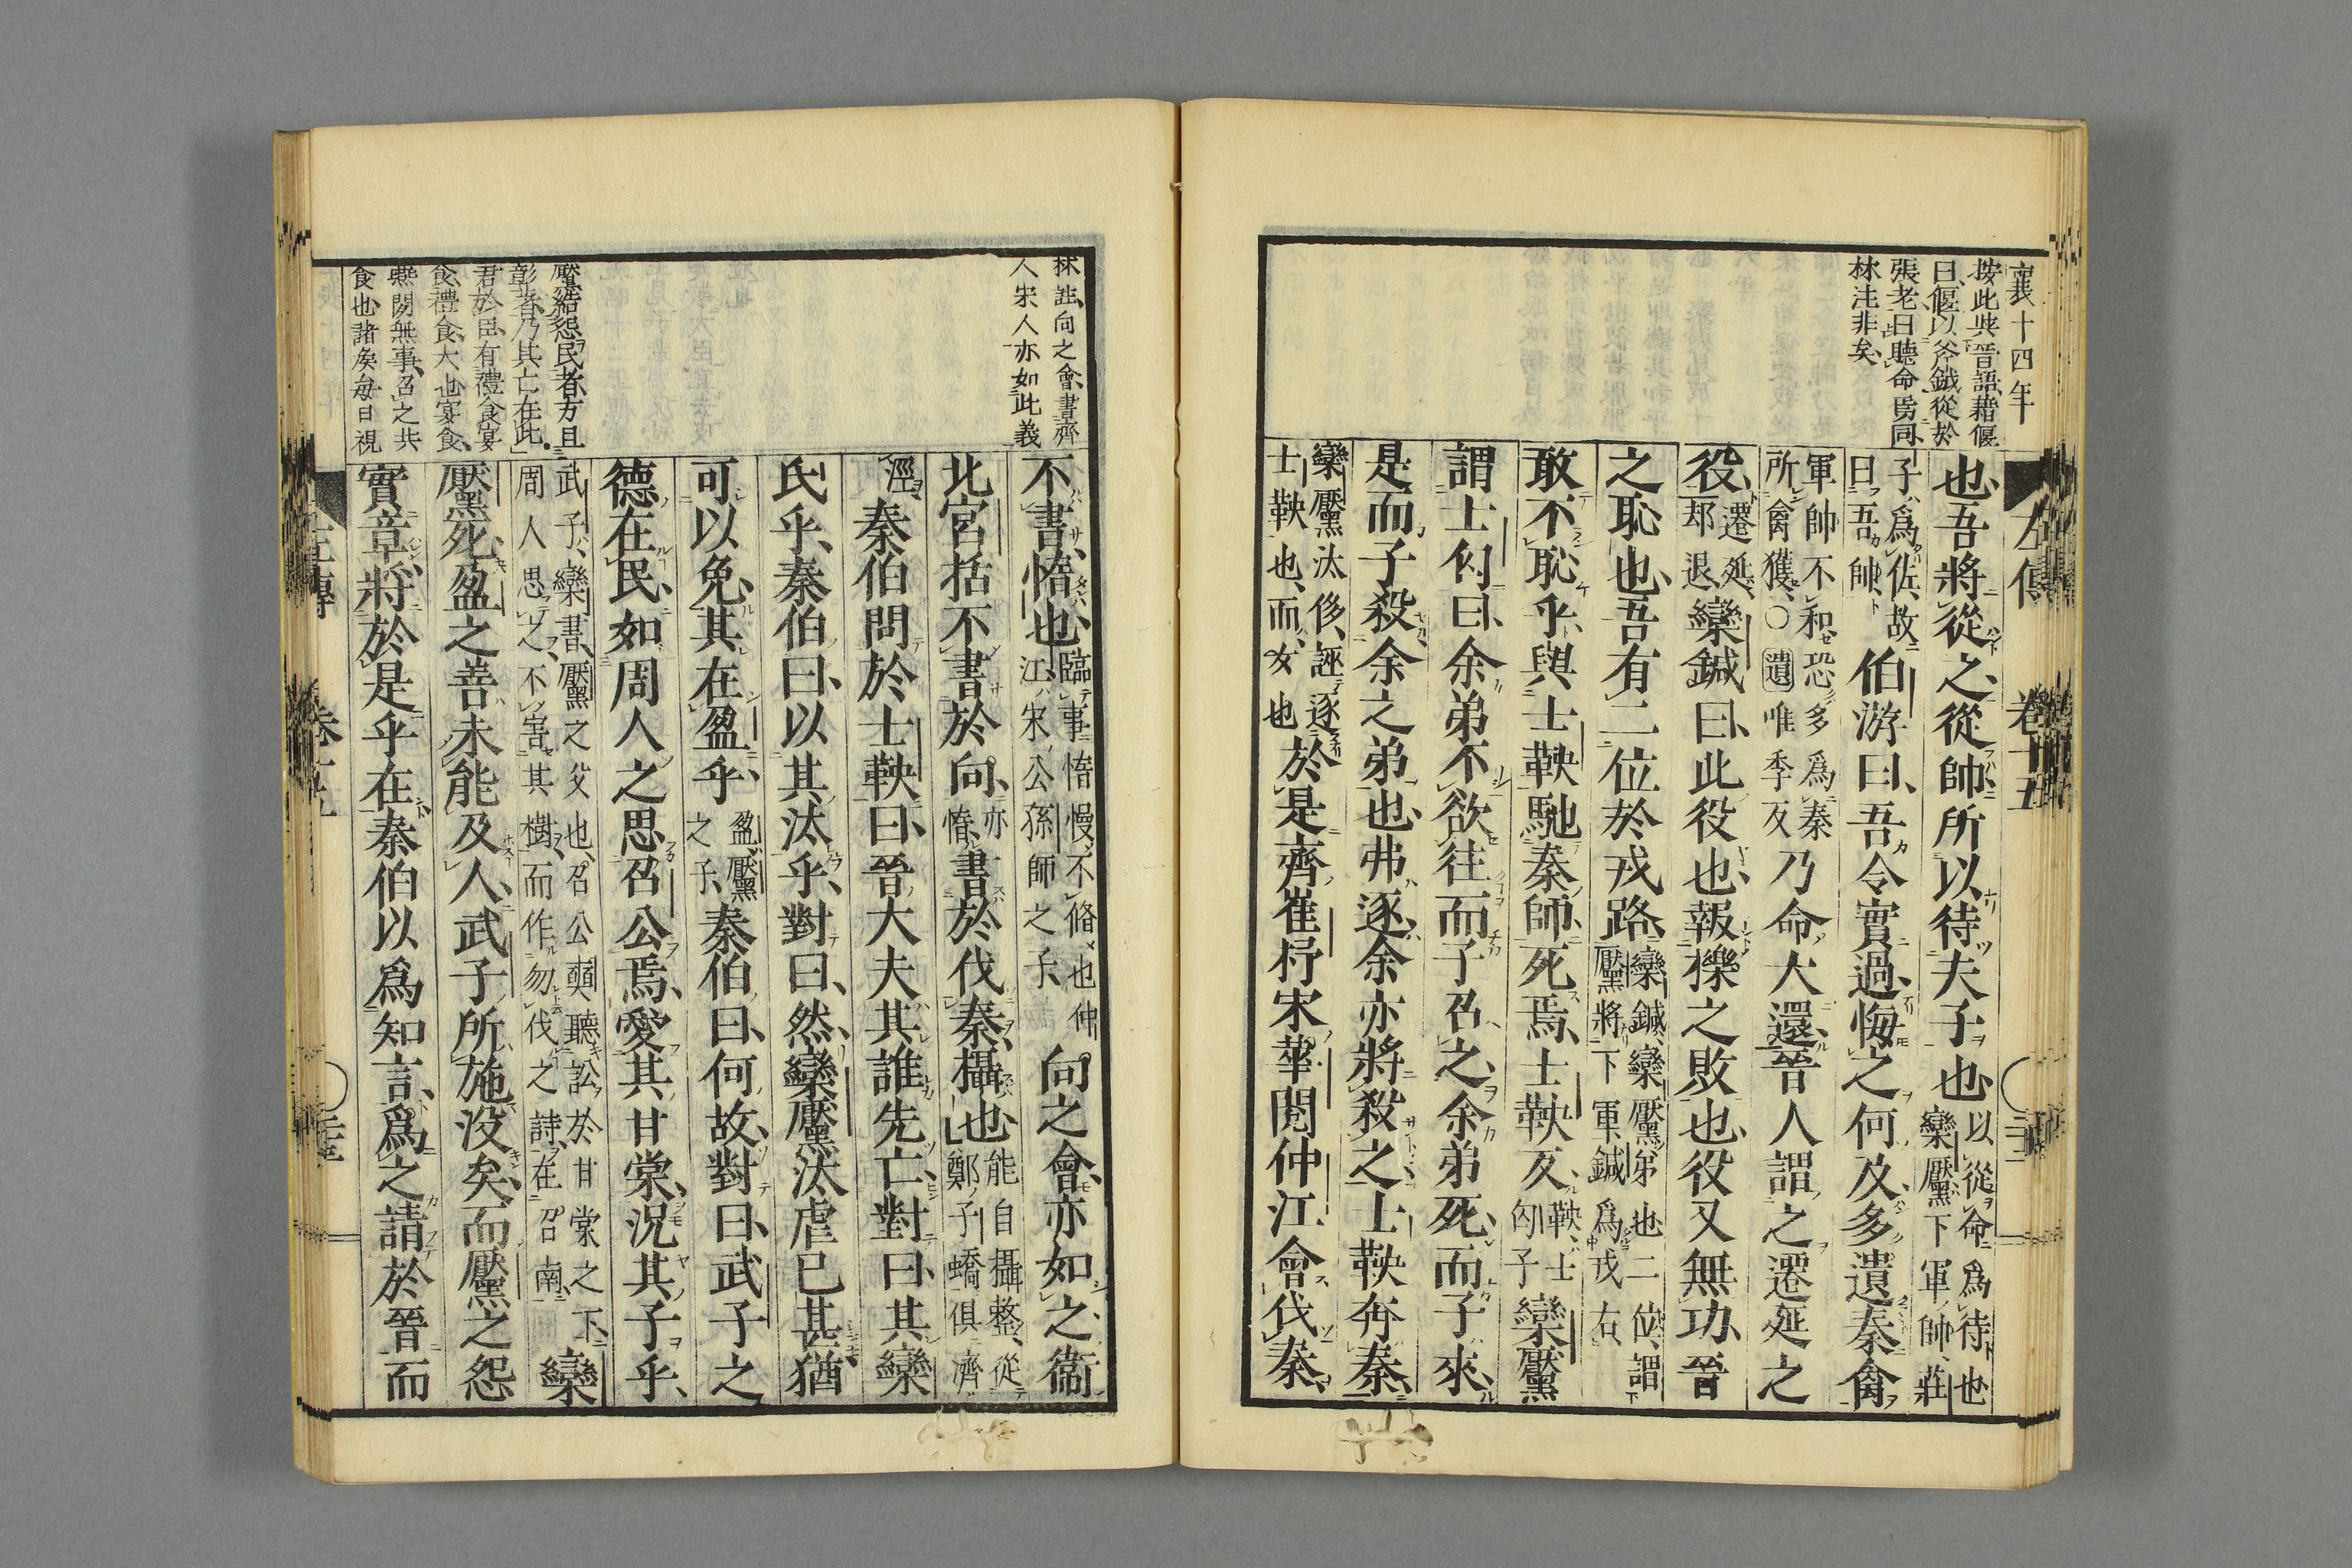 襄十四年
按此與晉語藉偃
曰偃以斧鉞從於
張老曰聽命焉同
林注非矣
左傳 卷十五
也吾將從之從帥所以待夫子也以從命爲待也
欒黶下軍帥莊
子爲佐故
曰吾帥伯游曰吾令實過悔之何及多遺秦禽
軍帥不和恐多爲秦
所禽獲〇遺唯季反乃命大還晉人謂之遷延之
役遷延
却退欒鍼曰此役也報櫟之敗也役又無功晉
之恥也吾有二位於戎路欒鍼欒黶弟也二位謂
黶將下軍鍼爲戎右
敢不恥乎與士鞅馳秦師死焉士鞅反鞅士
匃子欒黶
謂士匃曰余弟不欲往而子召之余弟死而子來
是而子殺余之弟也弗逐余亦將殺之士鞅奔秦
欒黶汰侈誣逐
士鞅也而女也於是齊崔杼宋華閱仲江會伐秦
林註向之會書齊
人宋人亦如此義
不書惰也臨事惰慢不脩也仲
江宋公孫師之子向之會亦如之衞
北宮括不書於向亦
惰書於伐秦攝也能自攝整從
鄭子蟜俱濟
涇秦伯問於士鞅曰晉大夫其誰先亡對曰其欒
氏乎秦伯曰以其汰乎對曰然欒黶汰虐已甚猶
可以免其在盈乎盈黶
之子秦伯曰何故對曰武子之
德在民如周人之思召公焉愛其甘棠況其子乎
武子欒書黶之父也召公奭聽訟於甘棠之下
周人思之不害其樹而作勿伐之詩在召南欒
黶死盈之善未能及人武子所施沒矣而黶之怨
實章將於是乎在秦伯以爲知言爲之請於晉而
黶結怨民者方且
彰著乃其亡在此
君於臣有禮食宴
食禮食大也宴食
燕閒無事召之共
食也諸矦每日視
左傳 卷十五